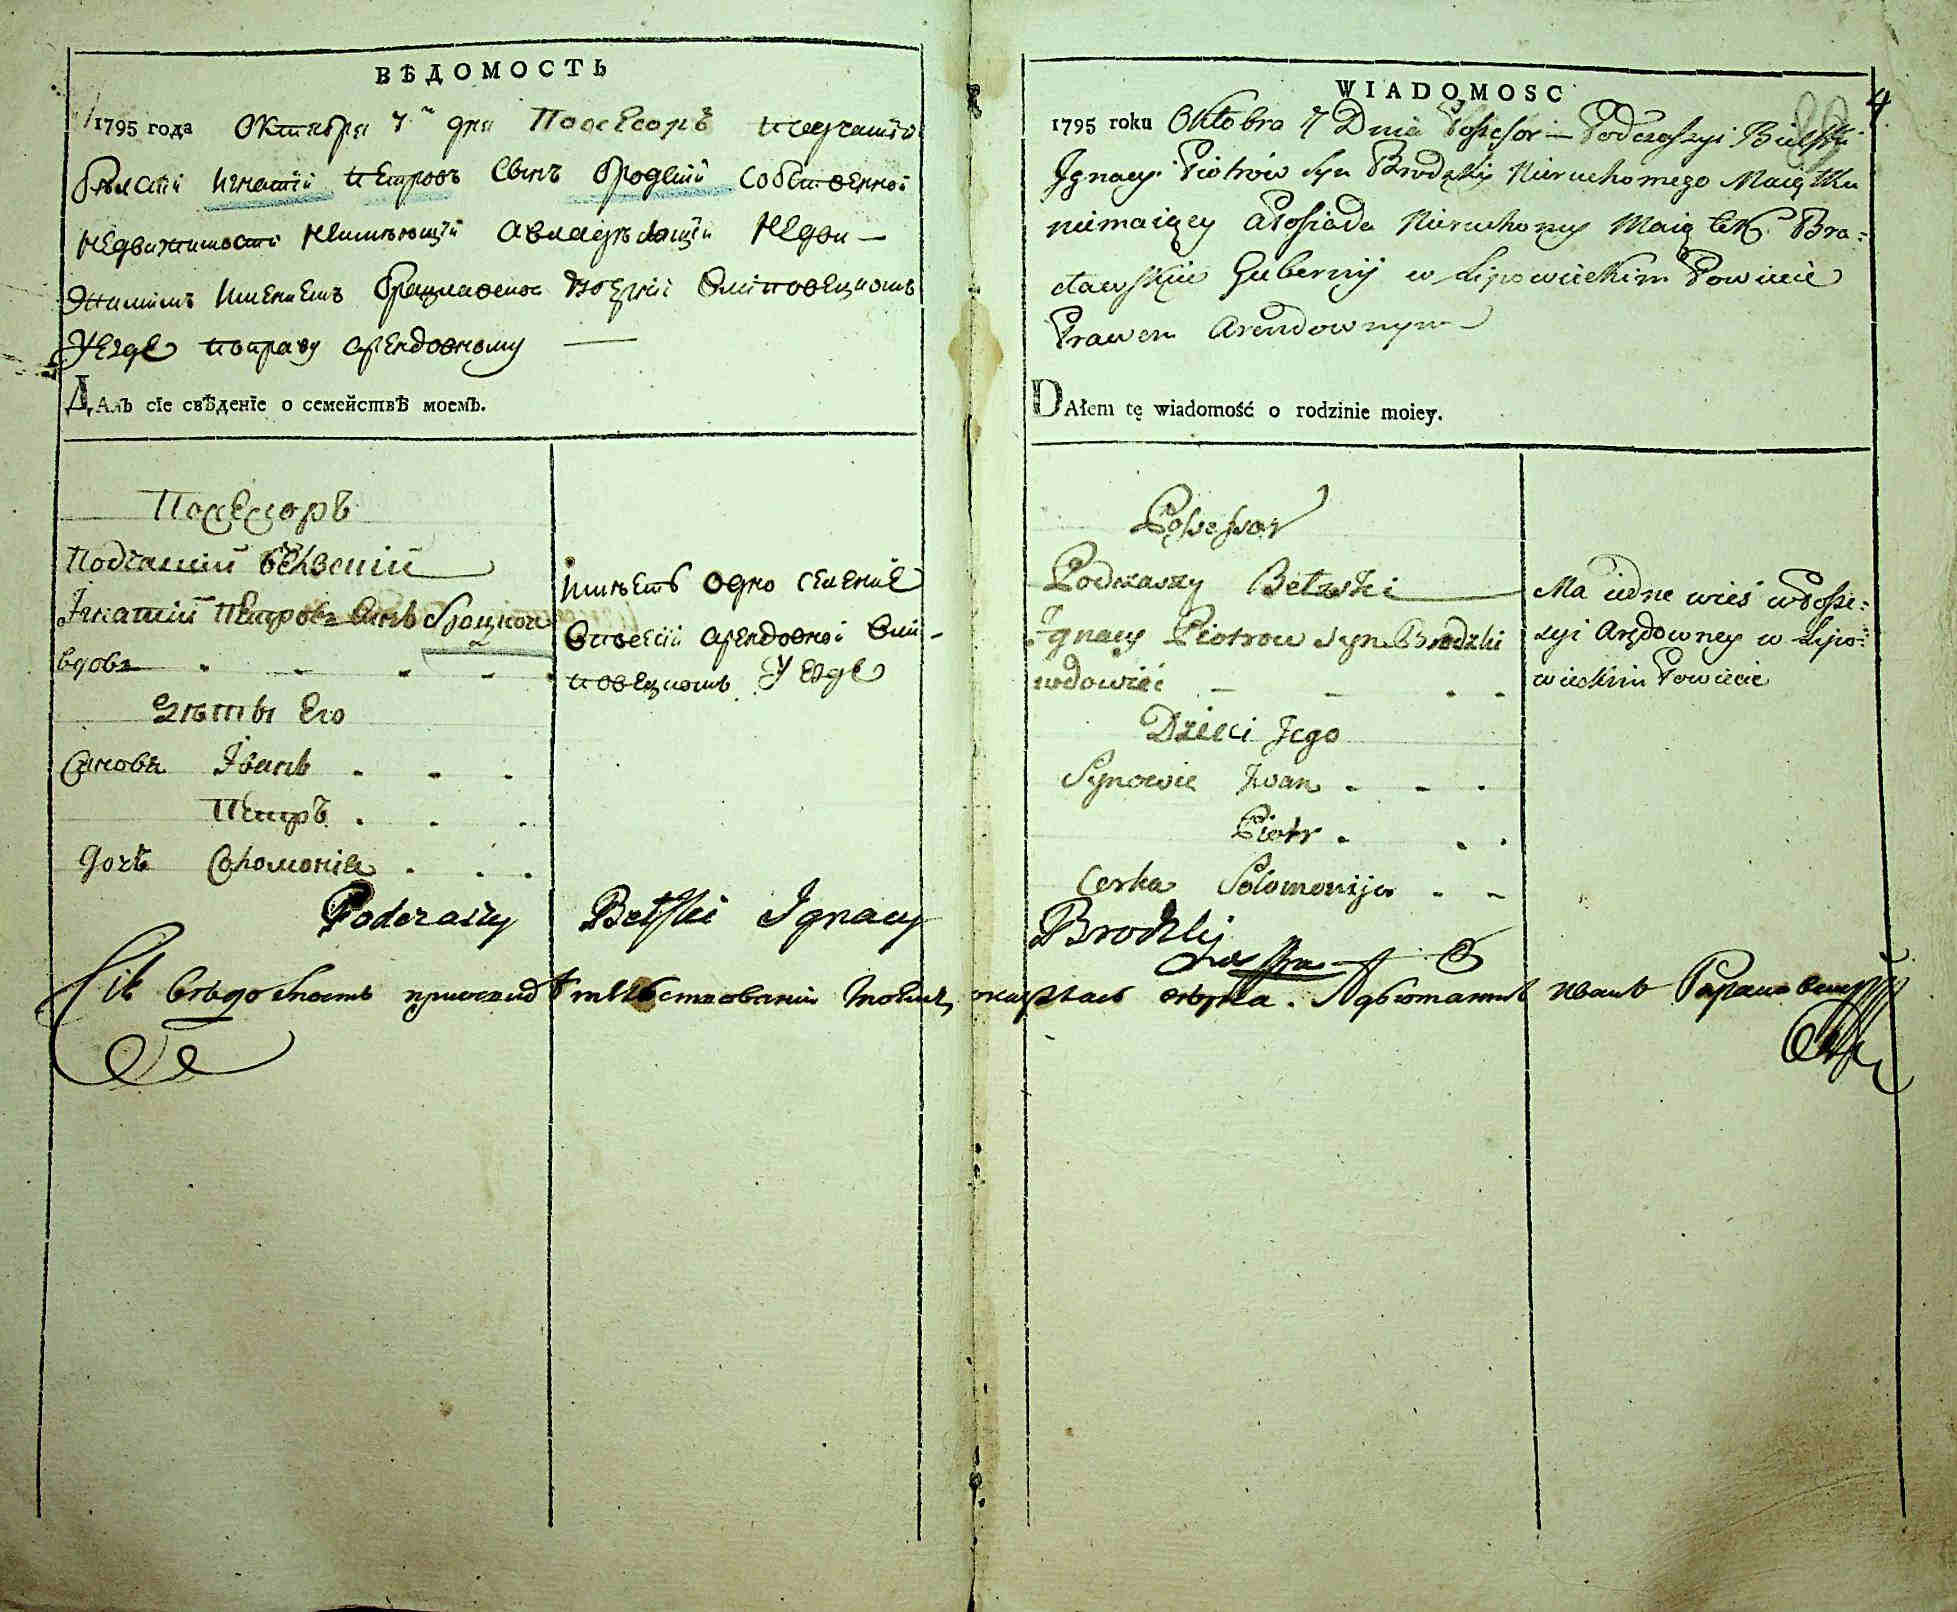 ВѢДОМОСТЬ
1795 года Октября 7 дня Посесоръ подчашїй
бѣлскїй Игнатїй Петровъ Сынъ Бродскїй Собственной
Недвижимости Неимѣющїй авладѣющїй Недви—
жимымъ Имѣнїемъ Брацлавской Губернїи Влиповецкомъ
Уезде поправу арендовному
ДАлъ сїе свѣденїе о семействѣ моемъ.
Посесоръ
Подчашїй
Їгнатїй Петровъ Сынъ
вдовъ
Дѣти Его
Синовя Їванъ
Петръ
Дочь Соломонїя
имѣетъ одно селенїе
Впосесїи арендовной Вли-
повецкомъ Уезде
WIADOMOSC
4
1795 roku Oktobra 7 Dnia Possesor Podczaszyi Bielski
Ignacy Piotrów Syn Brodzki Nieruchomego Maiątku
niemaiący a Posiada Nieruchomy Maiątek Bra=
cławskiey Gubernij w Lipowieckim Powiecie
Prawem Arendownym
DAłem tę wiadomość o rodzinie moiey.
Possessor
Podczaszy Bełzski
Ignacy Piotrow Syn Brodzki
wdowieć
Dzieci Jego
Synowie Iwan
Piotr
Corka Solomonija
Ma iedne wieś w Posse=
syi Arędowney w Lipo=
wieckim Powiecie
Podczaszy Bełzski Ignacy Brodzki
Сїя вѣдомость
Адъютантъ Иванъ